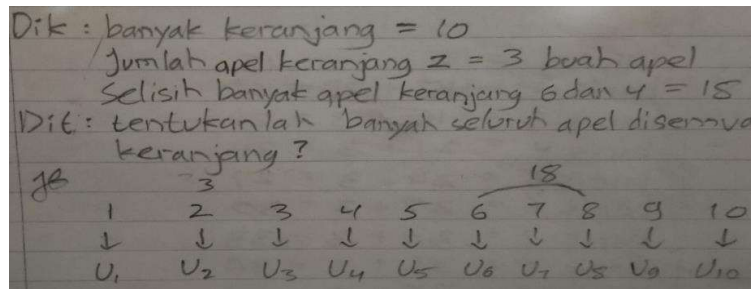 Dik : banyak keranjang = 10
Jumlah apel keranjang 2 = 3 buah apel
Selisih banyak apel keranjang 6 dan 4 = 18
Dit : tentukanlah banyak seluruh apel disemua
keranjang ?
Jb
3 18
1 2 3 4 5 6 7 8 9 10
↓ ↓ ↓ ↓ ↓ ↓ ↓ ↓ ↓ ↓
U₁ U₂ U₃ U₄ U₅ U₆ U₇ U₈ U₉ U₁₀